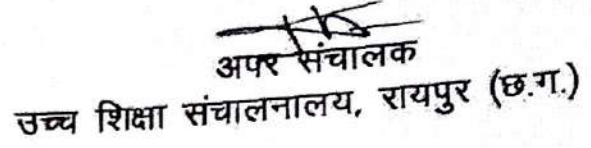 अपर संचालक
उच्च शिक्षा संचालनालय, रायपुर (छ.ग.)